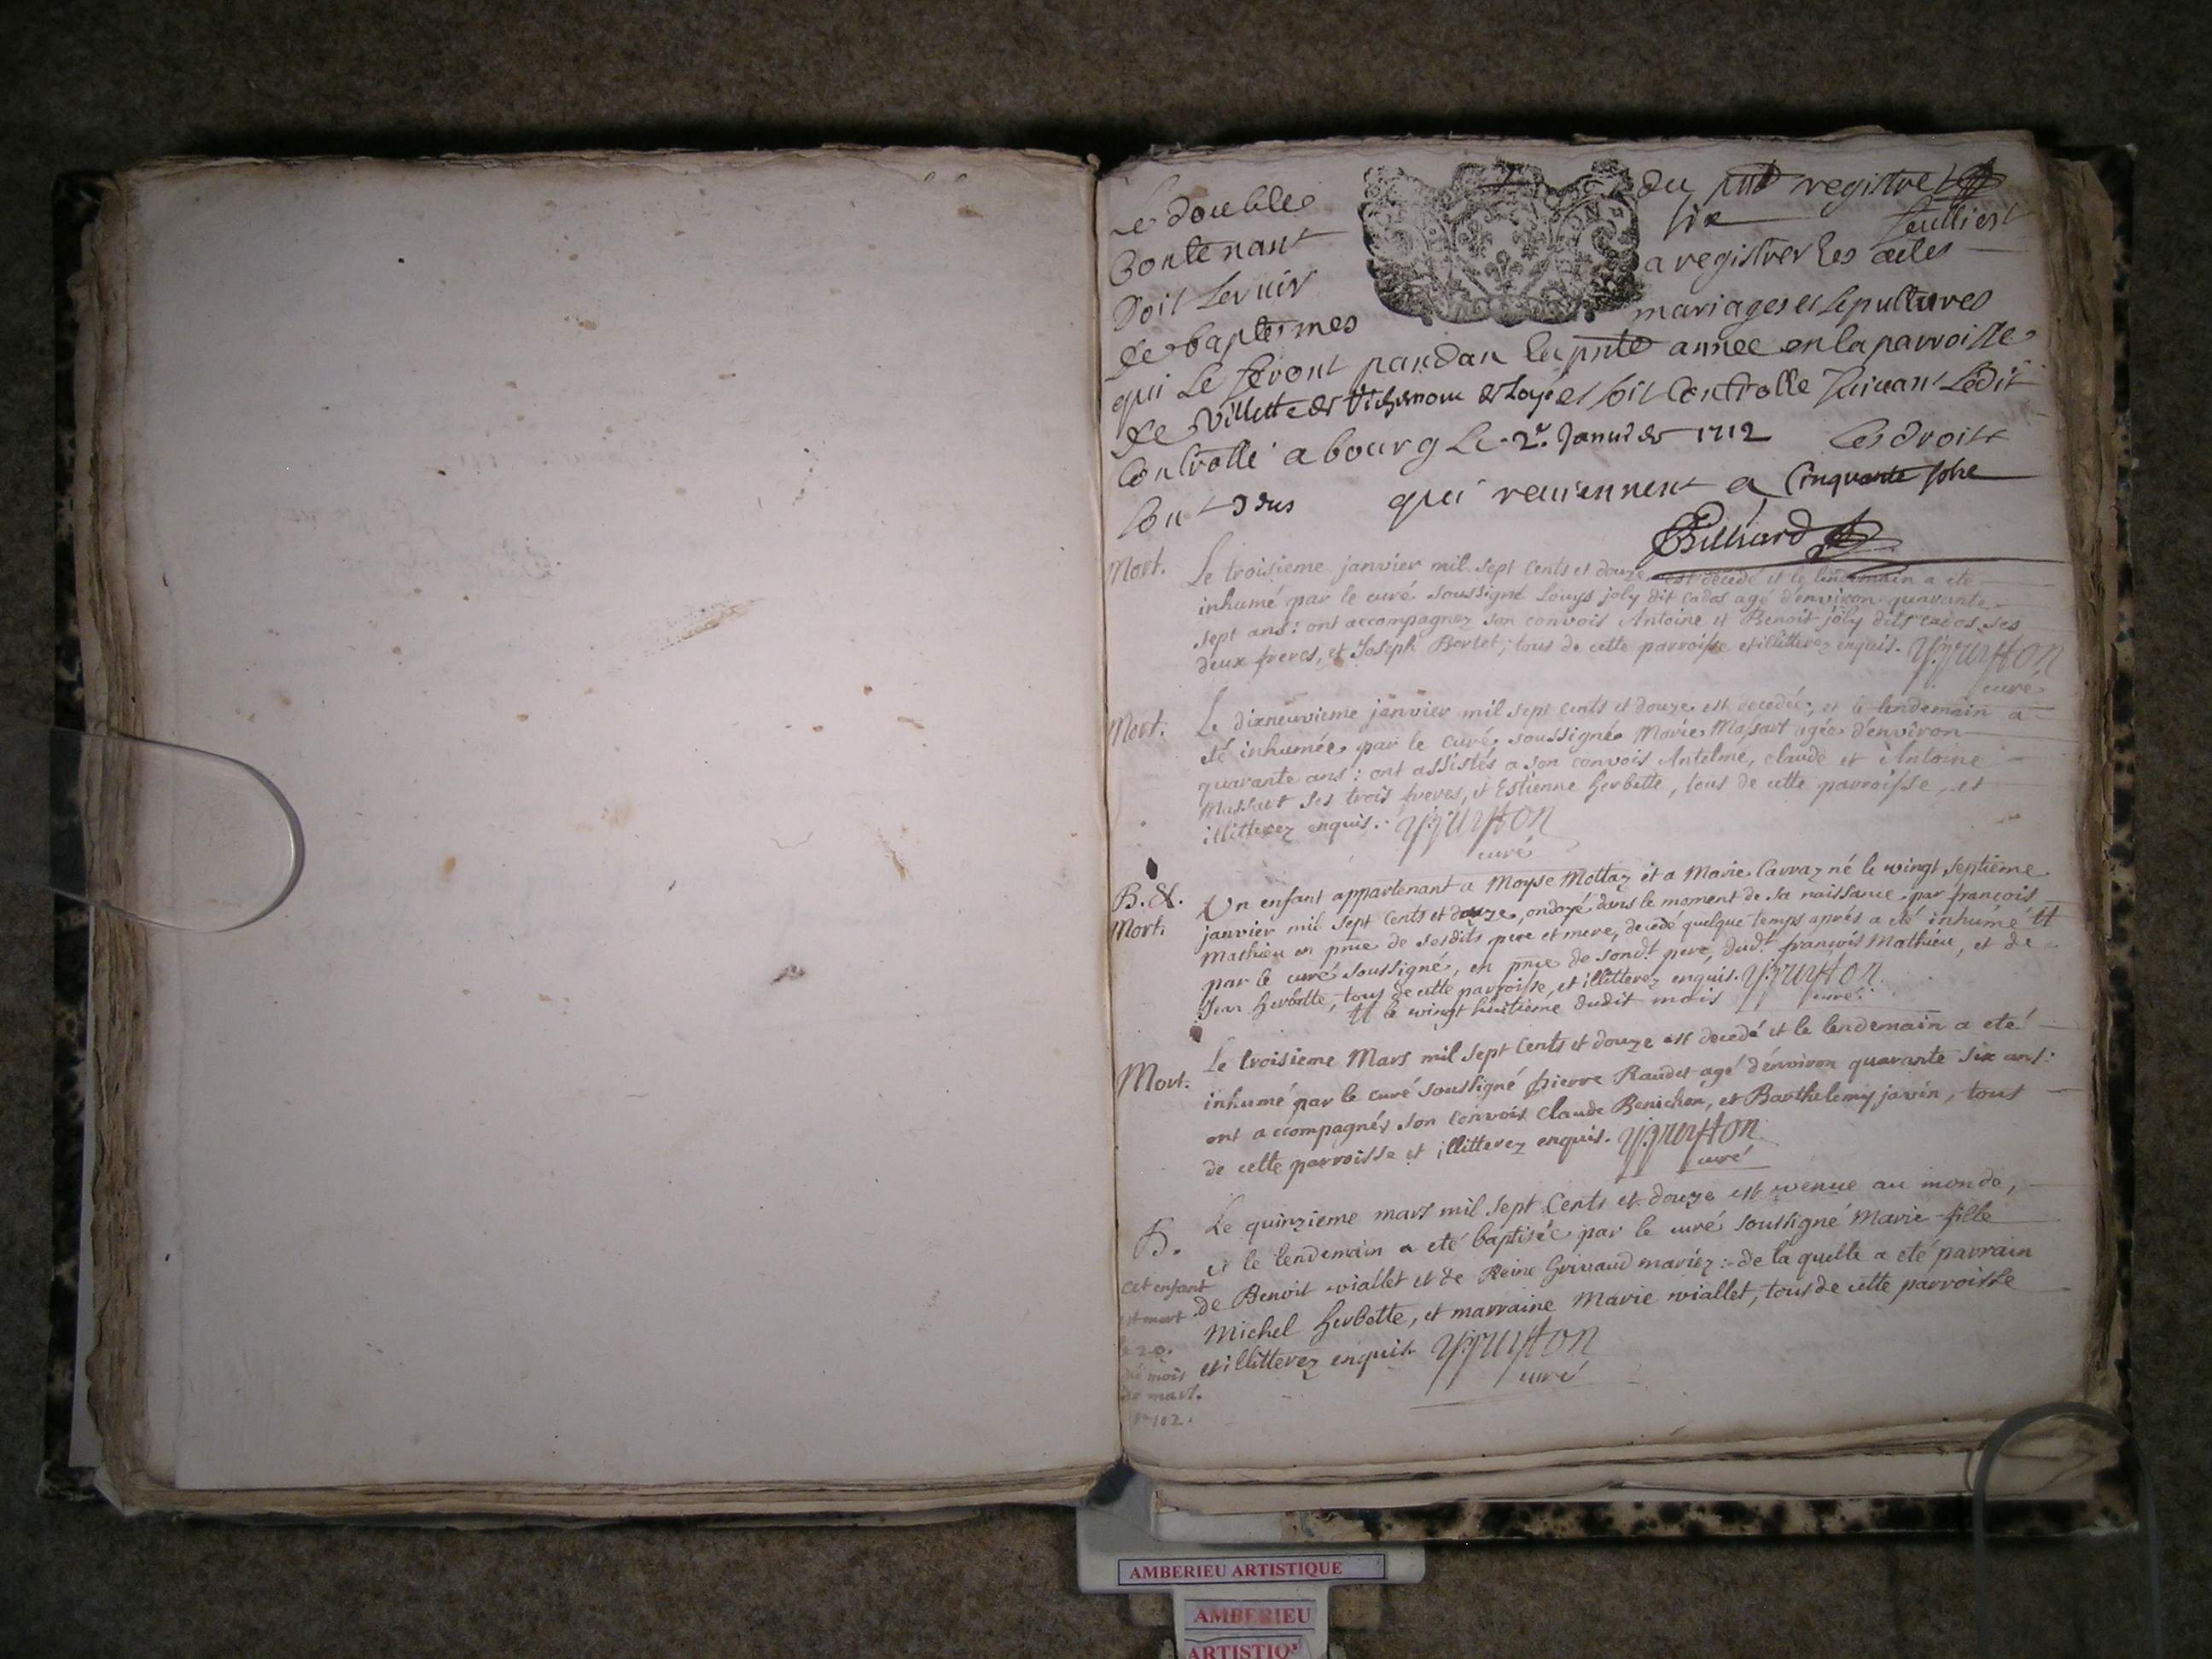 Le double du pnt registre
Contenant six feulliest
Doit servir a registrer les actes
de baptesmes mariages et sepultures
qui se feront pandan la pnte année en la parroisse
de Villette de et Loye et soit Controlle suivant Ledit
Controllé a bourg Le 2e Janvier 1712 Les droits
sont dus qui reviennent a Cinquante sols
Billiard
Mort. Le troisieme janvier mil sept cents et douze, est decedé et le lendemain a eté
inhumé par le curé soussigné Louys joly dit cados agé d'environ quarante
sept ans: ont accompagnez son convois Antoine et Benoit joly dits cados ses
deux freres, et Joseph Bertet; tous de cette parroisse et illitterez enquis.
curé
Mort. Le dixneuvieme janvier mil sept cents et douze est decedée, et le lendemain a
eté inhumée par le curé soussigné Marie Massart agée d'environ
quarante ans: ont assistés a son convois Antelme, claude et Antoine
Massart ses trois freres, et Estienne herbette, tous de cette parroisse, et
illitterez enquis.
curé
B. &. Un enfant appartenant a Moyse Mottaz et a Marie Carraz né le vingt septieme
Mort. janvier mil sept cents et douze, ondoyé dans le moment de sa naissance par françois
Mathieu en pnce de sesdits pere et mere, decedé quelque temps aprés a eté inhumé #
par le curé soussigné, en pnce de sondt pere, dudt françois Mathieu, et de
Jean herbette, tous de cette parroisse, et illitterez enquis.
# le vingt huitieme dudit mois curé
Mort. Le troisieme Mars mil sept cents et douze est decedé et le lendemain a eté
inhumé par le curé soussigné pierre Raudet agé d'environ quarante six ans:
ont accompagnés son convois claude Benichon, et Barthelemy javin, tous
de cette parroisse et illitterez enquis.
curé
B. Le quinzieme mars mil sept Cents et douze est venue au monde,
et le lendemain a eté baptisée par le curé soussigné Marie fille
de Benoit viallet et de Reine Grivaud mariez: de la quelle a eté parrain
Michel herbette, et marraine Marie viallet, tous de cette parroisse
et illitterez enquis
curé
cet enfant
est mort
le 20.
du mois
de mars.
1712.
AMBERIEU ARTISTIQUE
AMBERIEU
ARTISTIQ